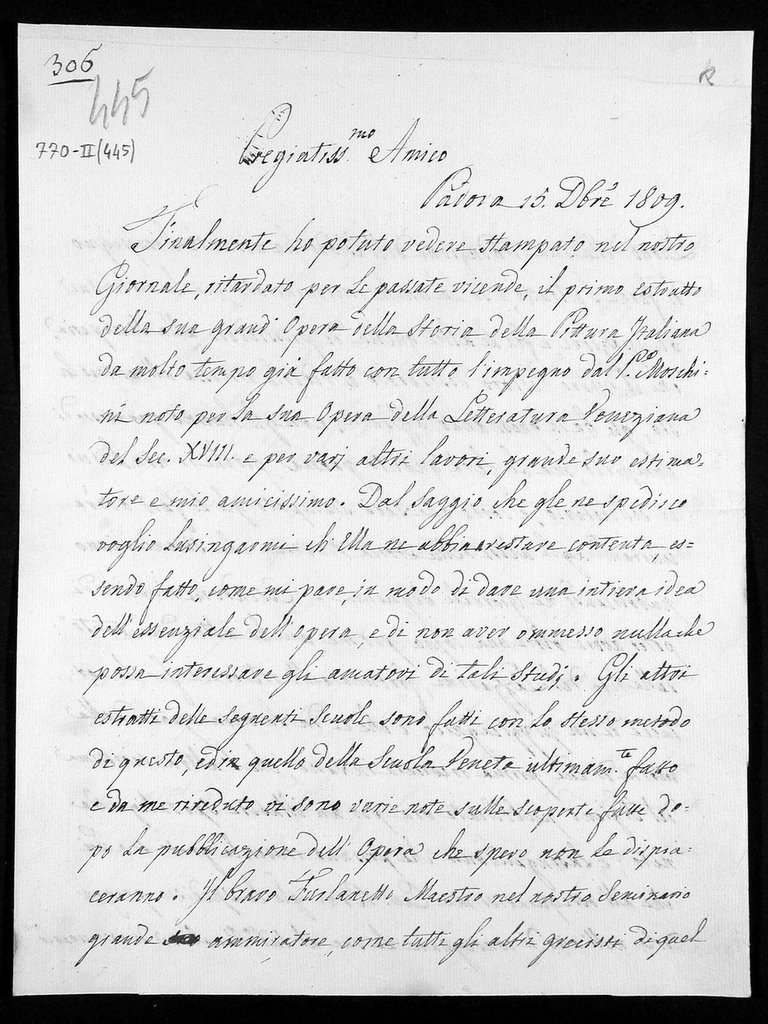 306
445
770-II(445)
Pregiatiss.mo Amico
Padova 15. Dbre 1809.
Finalmente ho potuto vedere stampato nel nostro
Giornale, ritardato per le passate vicende, il primo estratto
della sua grand' Opera della Storia della Pittura Italiana
da molto tempo già fatto con tutto l'impegno dal P. Moschi-
ni noto per la sua Opera della Letteratura Veneziana
del Sec. XVIII. e per varj altri lavori, grande suo estima-
tore e mio amicissimo. Dal saggio che gle ne spedisco
voglio lusingarmi ch' Ella ne abbia a restare contenta, es=
sendo fatto, come mi pare, in modo di dare una intiera idea
dell' essenziale dell' opera, e di non aver ommesso nulla che
possa interessare gli amatori di tali Studj. Gli altri
estratti delle seguenti Scuole sono fatti con lo stesso metodo
di questo, ed in quello della Scuola Veneta ultimam.te fatto
e da me riveduto vi sono varie note sulle scoperte fatte do-
po la pubblicazione dell' Opera che spero non le dispia-
ceranno. Il bravo Furlanetto Maestro nel nostro Seminario
grande ammiratore, come tutti gli altri grecisti di quel